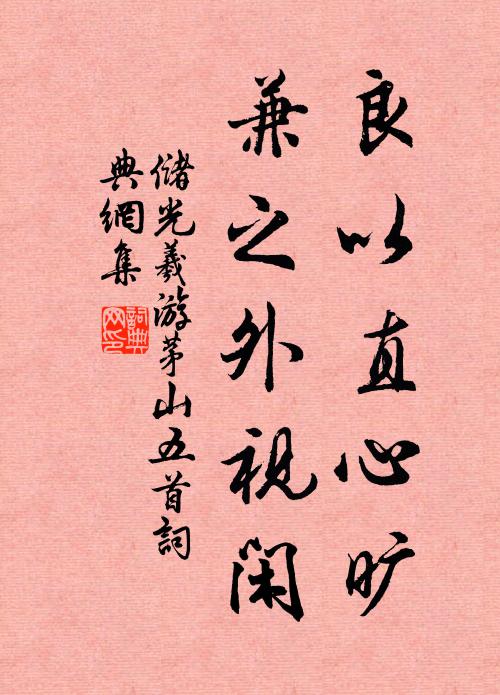 良以直心旷
兼之外视闲
储光羲游茅山五首詞
典網集
詞典
网印